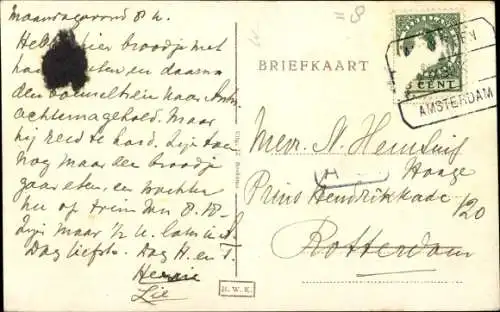 Maandagavond 8 u.
Hebben hier broodje met
en daarna
den boemeltrein naar
achternagehold. Maar
hij reed te hard. Zijn toen
nog maar een broodje
gaan eten, en wachten
nu op trein van 8.18
Zijn maar ½ u. later in A.
Dag liefste. Dag H. en T.
Zie
BRIEFKAART
5 CENT
AMSTERDAM
Mevr. N. Hemsing
Haage
Prins Hendrikkade 120
Rotterdam
H.W.K.